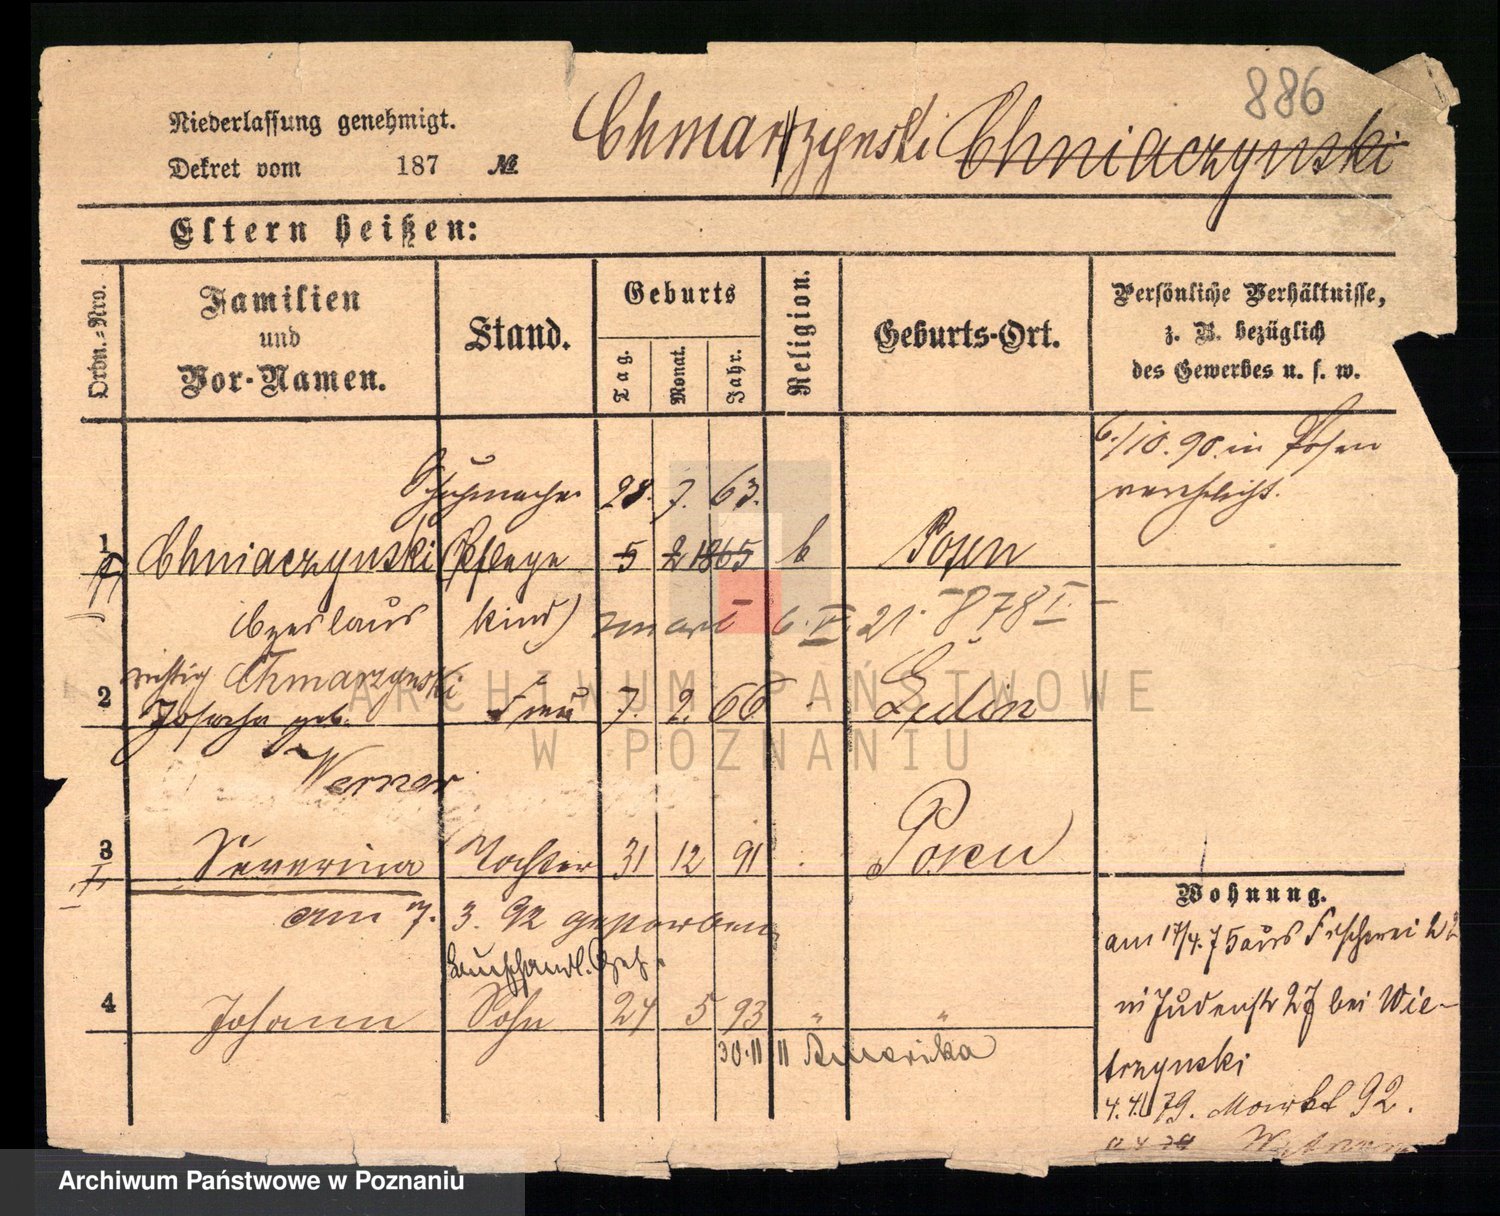 886
Niederlassung genehmigt.
Dekret vom 187 №
Chmarzynski Chniaczynski
Eltern heißen:
Ordn.-Nro.
Familien und Vor-Namen.
Stand.
Geburts
Tag.
Monat.
Jahr.
Religion.
Geburts-Ort.
Persönliche Verhältnisse, z. B. bezüglich des Gewerbes u. s. w.
6./10.90. in Posen
verehelicht.
Schuhmacher 28. 7. 63.
1 Chniaczynski (Pflege 5 2 1865 k Posen
Czeslaus kind) 21. 878 I.
richtig Chmarzynski
2 Josepha geb. Frau 7. 2. 66
Werner
3 Severina Tochter 31 12 91 Posen
am 7. 3. 92 gestorben
4 Johann Sohn 24 5 93 " "
30.11 11 Amerika
Wohnung.
am 17/4.75 aus Fischerei
in Judenstr 27 bei Wie-
trzynski
4.4. 79. Markt 92.
ARCHIWUM PAŃSTWOWE
W POZNANIU
Archiwum Państwowe w Poznaniu